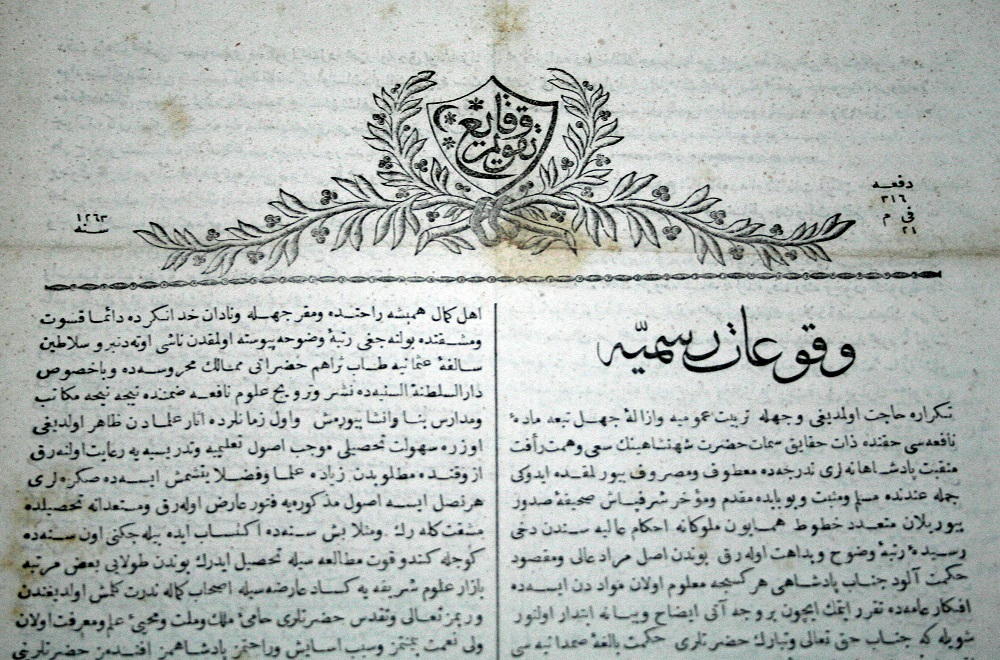 تقويم وقايع
دفعه
٣١٦
فى م
٢١
١٢٦٣
سنه
وقوعات رسميه
تكراره حاجت اولديغى وجهله تربيت عموميه وازالۀ جهل تبعه مادۀ
نافعه سى حقنده ذات حقايق سمات حضرت شهنشاهينك سعى وهمت رأفت
منقبت پادشاهانه لرى ندرجه ده معطوف ومصروف بيورلقده ايدوكى
جمله عندنده مسلم ومثبت وبوبابده مقدم ومؤخر شرفپاش صحيفۀ صدور
بيوريلان متعدد خطوط همايون ملوكانه احكام عاليه سندن دخى
رسيدۀ رتبۀ وضوح وبداهت اوله رق بوندن اصل مراد عالى ومقصود
حكمت آلود جناب پادشاهى هركسجه معلوم اولان مواددن ايسه ده
افكار عامه ده تقرر ايتمك ايچون بر وجه آتى ايضاح وبيانه ابتدار اولنور
شويله كه جناب حق تعالى وتبارك حضرتلرى حكمت بالغۀ صمدانيه سى
اهل كمال هميشه راحتده ومقر جهله ونادان خدانكرده دائما قسوت
ومشقتده بولنه جغى رتبۀ وضوحه پيوسته اولمقدن ناشى اوته دنبرو سلاطين
سالفۀ عثمانيه طاب ثراهم حضراتى ممالك محروسه ده وباخصوص
دارالسلطنة السنيه ده نشر وترويج علوم نافعه ضمننده نيجه نيجه مكاتب
ومدارس بنا وانشا بيورمش واول زمانلرده آثار علمادن ظاهر اولديغى
اوزره سهولت تحصيلى موجب اصول تعليميه وتدريسيه يه رعايت اولنه رق
از وقتده مطلوبدن زياده علما وفضلا يتشمش ايسه ده صكره لرى
هر نصل ايسه اصول مذكوره يه فتور عارض اوله رق ومستعدانه تحصيلده
مشقت كله رك ومثلا بش سنه ده اكتساب ايده بيله جكنى اون سنه ده
كوجله كندو قوت مطالعه سيله تحصيل ايدرك بوندن طولايى بعض مرتبه
بازار علوم شريفه يه كساد عارضه سيله اصحاب كماله ندرت كلمش اولديغندن
وربمز تعالى وتقدس حضرتلرى حامئ ملك وملت ومحيئ علم ومعرفت اولان
ولى نعمت بيمنتمز وسبب آسايش وراحتمز پادشاهمز افندمز حضرتلرينى